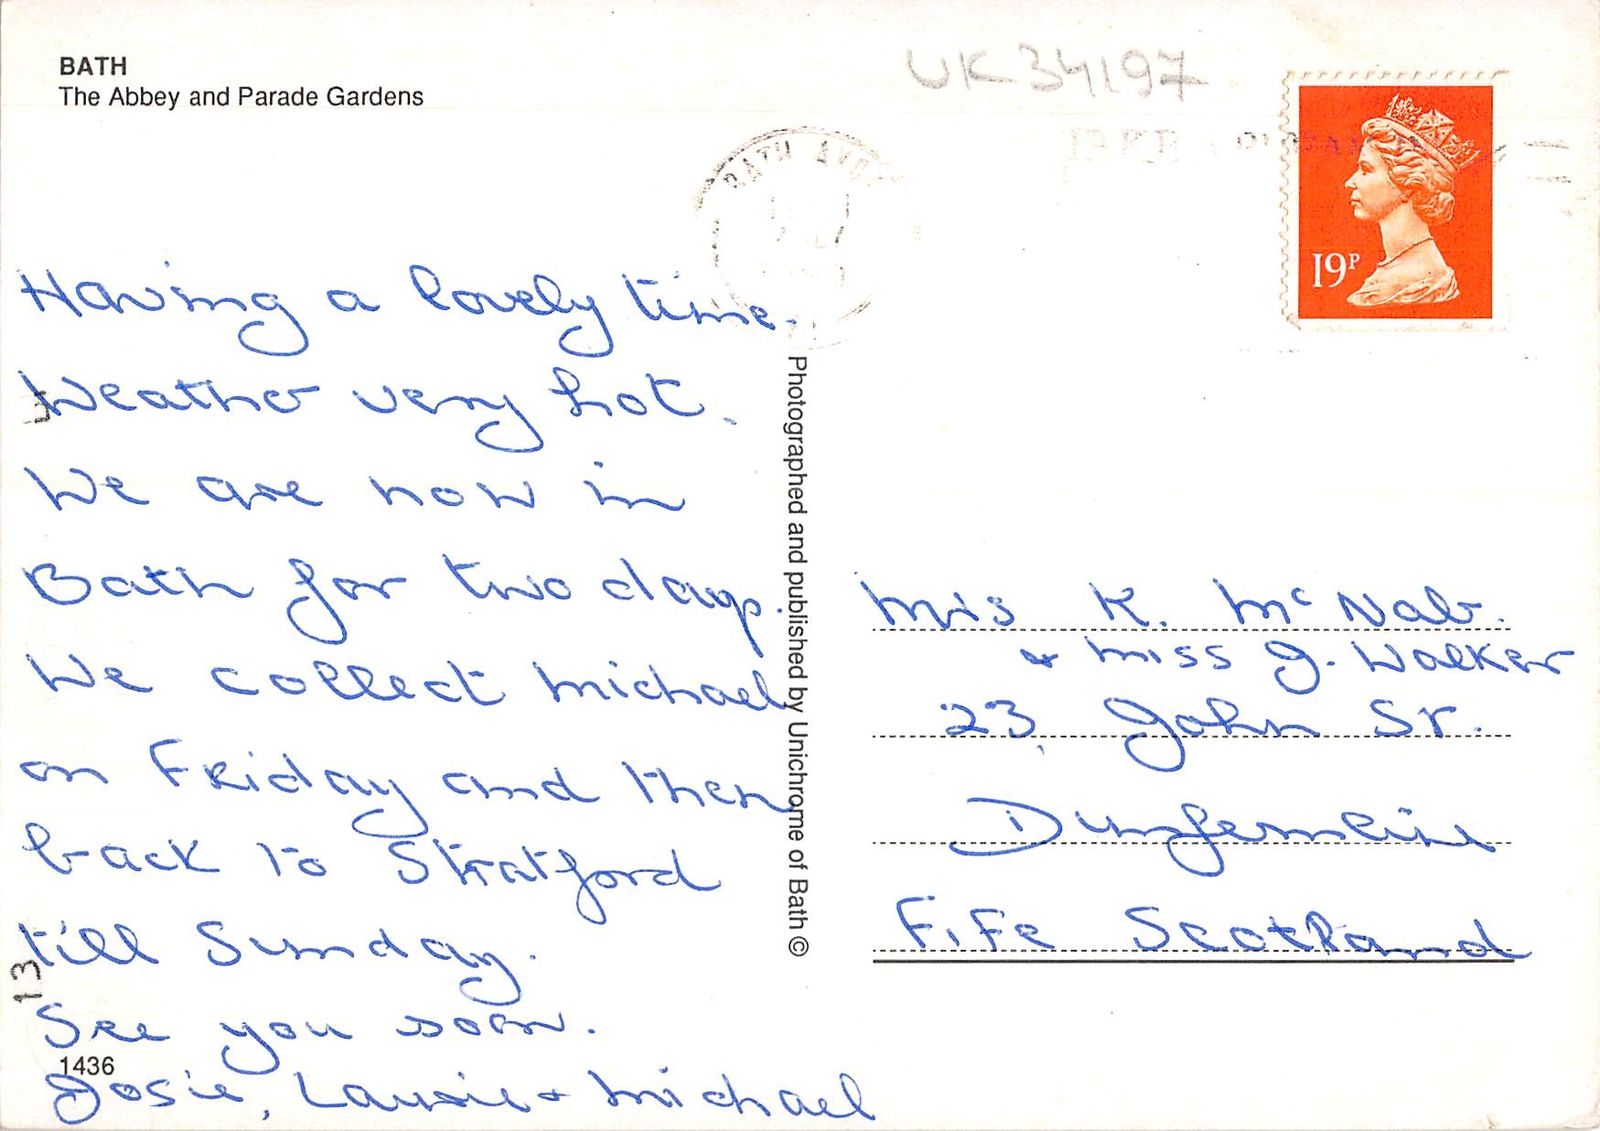 BATH
The Abbey and Parade Gardens
UK34197
BATH AVON
19P
Having a lovely time.
Weather very hot.
We are now in
Bath for two days.
We collect Michael
on Friday and then
back to Stratford
till Sunday.
See you soon.
1436
Josie, Laurie + Michael
13
Photographed and published by Unichrome of Bath ©
Mrs K. McNab.
& Miss J. Walker
23, John St.
Dunfermline
Fife Scotland